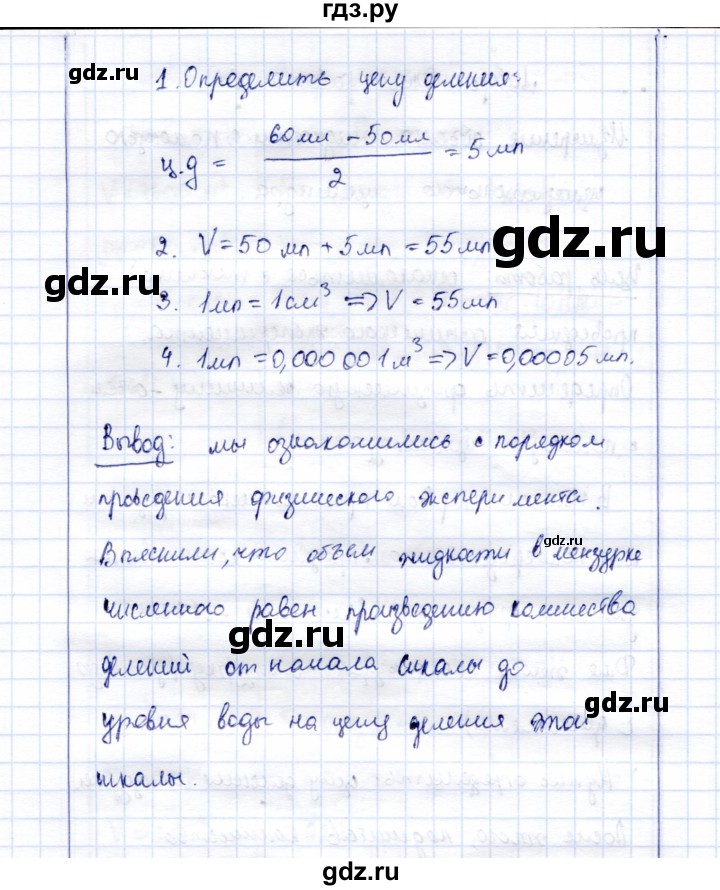 гдз.ру
gdz.ru
1. Определить цену деления:
ц.д = 60мл - 50мл / 2 = 5мл
gdz.ru
2. V = 50 мл + 5мл = 55мл
gdz.ru
3. 1мл = 1см³ => V = 55мл
4. 1мл = 0,000 001м³ => V = 0,00005мл.
Вывод: мы ознакомились с порядком
проведения физического эксперимента.
gdz.ru
Выяснили, что объем жидкости в мензурке
численного равен произведению количества
gdz.ru
делений от начала шкалы до
уровня воды на цену деления этой
gdz.ru
шкалы.
gdz.ru
gdz.ru